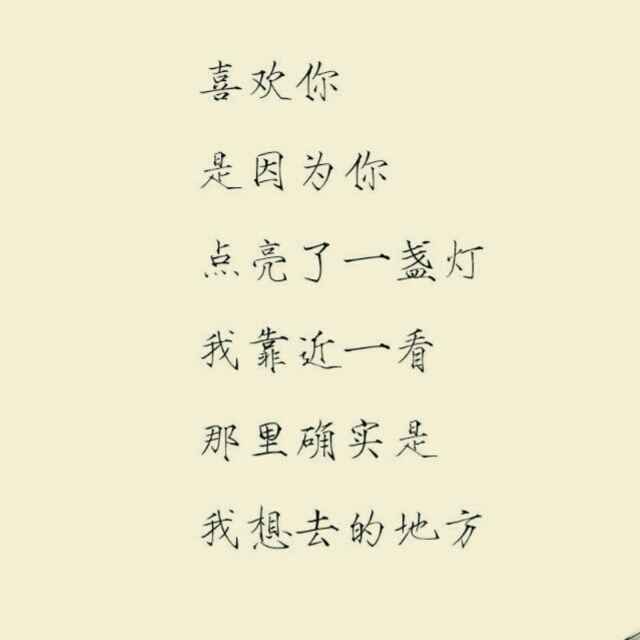 喜欢你
是因为你
点亮了一盏灯
我靠近一看
那里确实是
我想去的地方